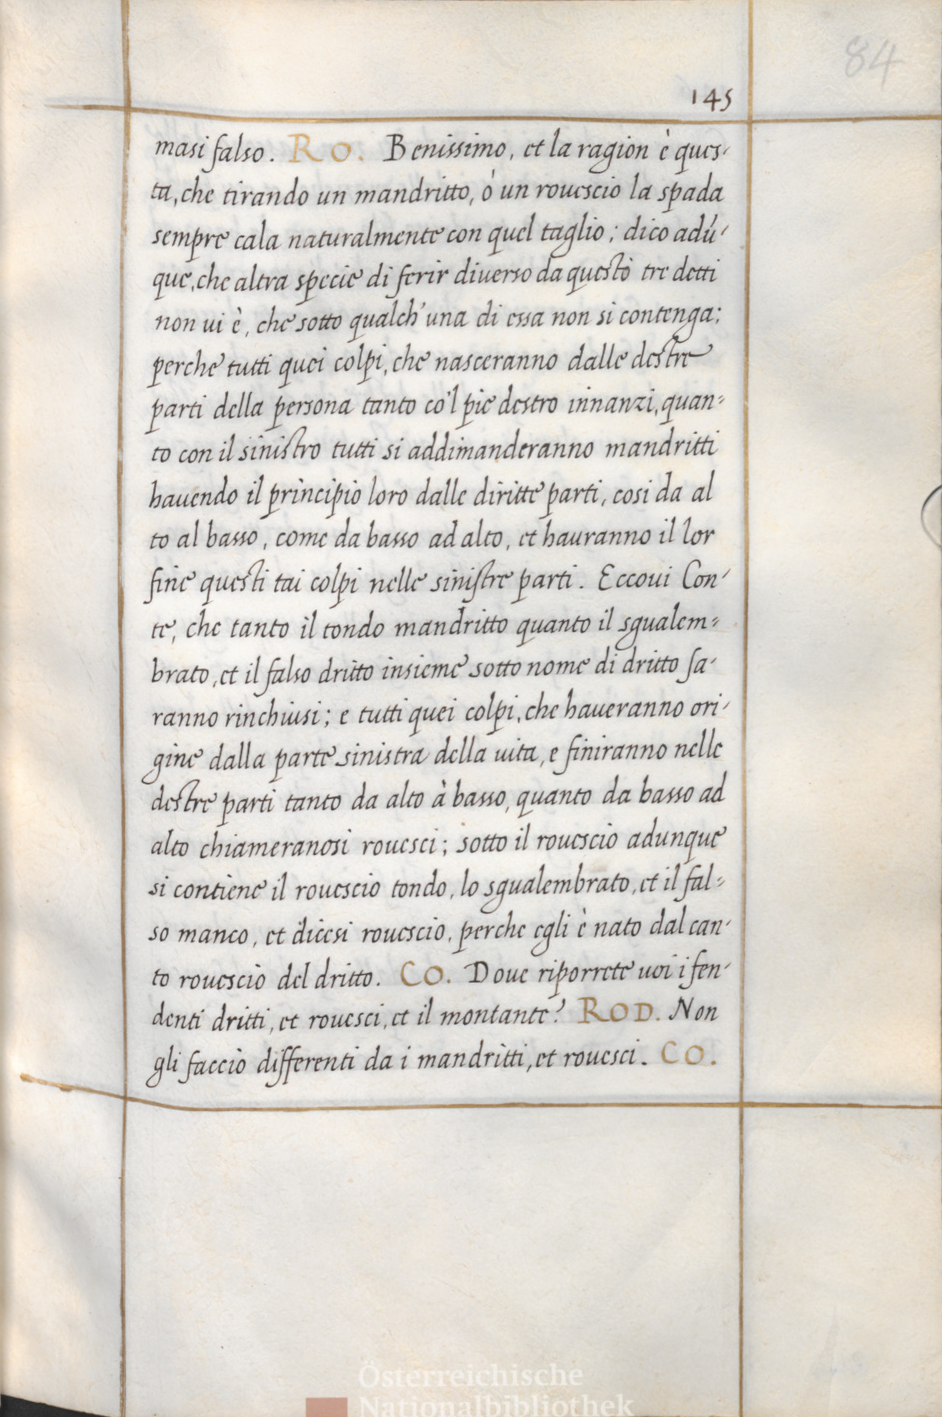 84
145
masi falso. RO. Benissimo, et la ragion è ques-
ta, che tirando un mandritto, ò un rouescio la spada
sempre cala naturalmente con quel taglio; dico adú-
que, che altra specie di ferir diuerso da questo tre detti
non ui è, che sotto qualch'una di essa non si contenga;
perche tutti quei colpi, che nasceranno dalle destre
parti della persona tanto co'l pie destro innanzi, quan-
to con il sinistro tutti si addimanderanno mandritti
hauendo il principio loro dalle diritte parti, cosi da al
to al basso, come da basso ad alto, et hauranno il lor
fine questi tai colpi nelle sinistre parti. Eccoui Con-
te, che tanto il tondo mandritto quanto il sgualem-
brato, et il falso dritto insieme sotto nome di dritto sa-
ranno rinchiusi; e tutti quei colpi, che haueranno ori-
gine dalla parte sinistra della uita, e finiranno nelle
destre parti tanto da alto à basso, quanto da basso ad
alto chiameranosi rouesci; sotto il rouescio adunque
si contiene il rouescio tondo, lo sgualembrato, et il fal-
so manco, et dicesi rouescio, perche egli è nato dal can-
to rouescio del dritto. CO. Doue riporrete uoi i fen-
denti dritti, et rouesci, et il montante? ROD. Non
gli faccio differenti da i mandritti, et rouesci. CO.
Österreichische
Nationalbibliothek